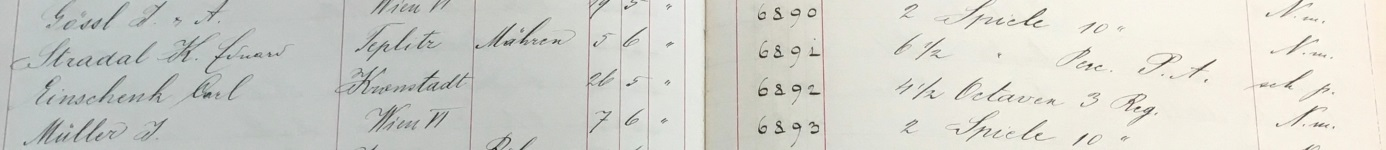 Gössl J. " A. Wien VI 29 5 " 6890 2 Spiele 10" N.m.
Stradal K. Eduard Teplitz Mähren 5 6 " 6891 6 1/2 " Perc. P.A. N.m.
Einschenk Carl Kronstadt 26 5 " 6892 4 1/2 Octaven 3 Reg. sch p.
Müller J. Wien VI 7 6 " 6893 2 Spiele 10" N.m.